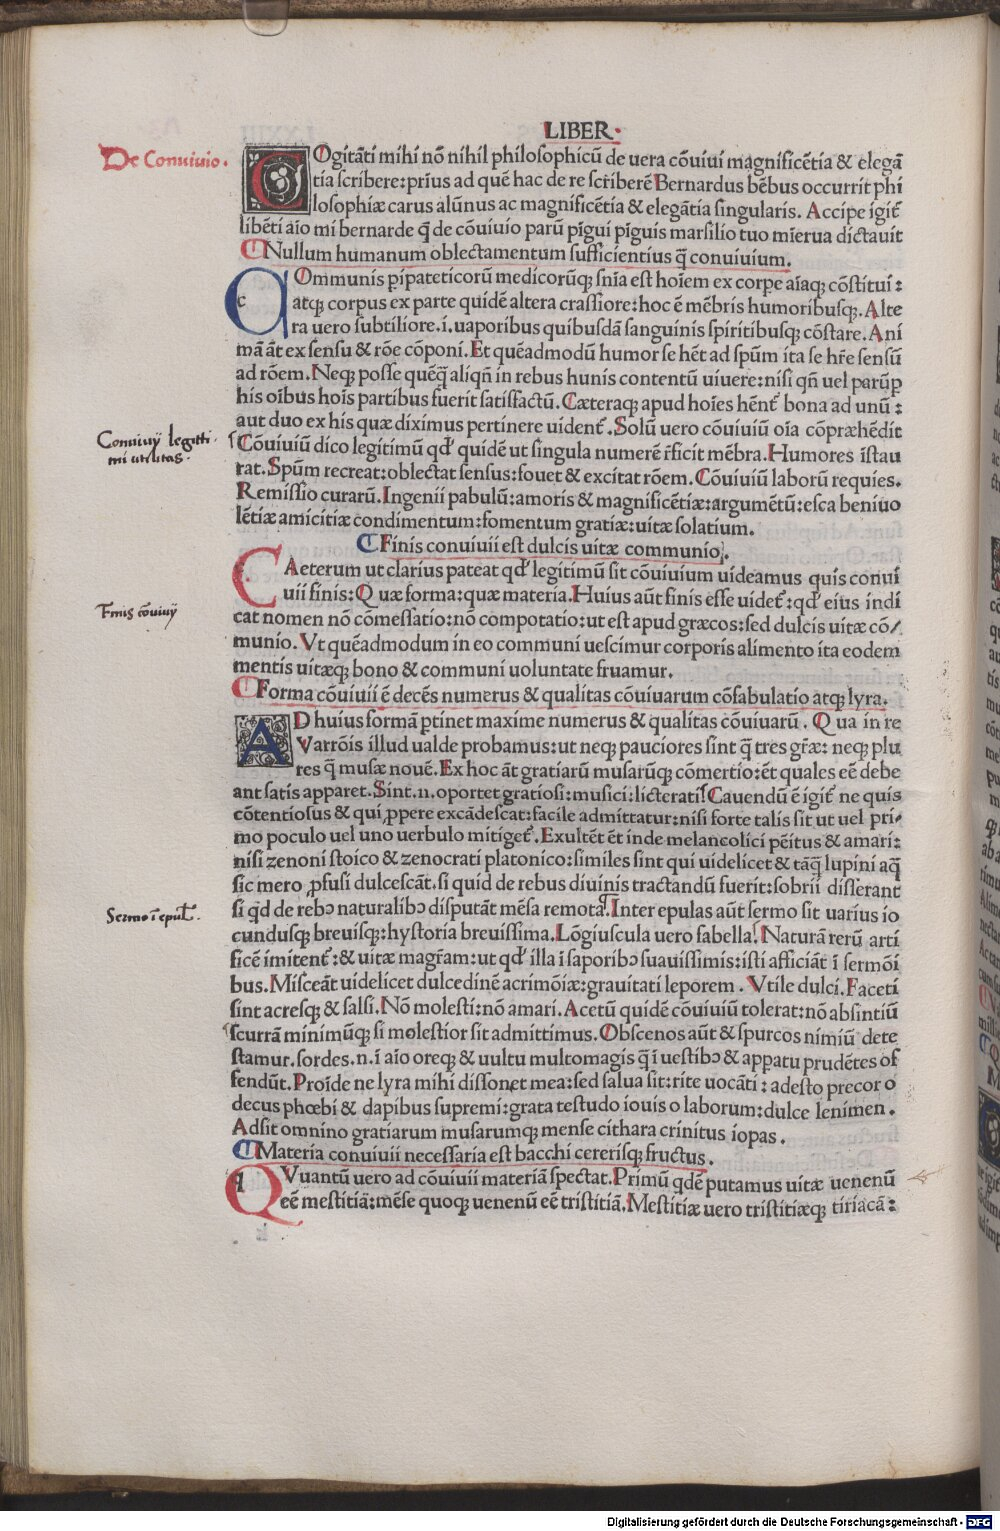 LIBER.
De Conuiuio.
COgitāti mihi nō nihil philosophicū de uera cōuiui magnificētia & elegā
tia scribere:prius ad quē hac de re scriberē Bernardus bēbus occurrit phi
losophiæ carus alūnus ac magnificētia & elegātia singularis. Accipe igit̄
libēti aīo mi bernarde q̄ de cōuiuio parū pigui piguis marsilio tuo mierua dictauit
¶Nullum humanum oblectamentum sufficientius q̄ conuiuium.
c
COmmunis pipateticorū medicorūqꝫ snīa est hoīem ex corpe aīaqꝫ cōstitui:
atqꝫ corpus ex parte quidē altera crassiore:hoc ē mēbris humoribusqꝫ. Alte
ra uero subtiliore.i.uaporibus quibusdā sanguinis spiritibusqꝫ cōstare. Ani
mā āt ex sensu & rōe cōponi. Et quēadmodū humor se hēt ad spūm ita se hr̄e sensū
ad rōem. Neqꝫ posse quēq̄ aliqn̄ in rebus hunis contentū uiuere:nisi qn̄ uel parūꝑ
his oībus hoīs partibus fuerit satisfactū. Cæteraqꝫ apud hoīes hēnt̄ bona ad unū:
aut duo ex his quæ diximus pertinere uident̄. Solū uero cōuiuiū oīa cōpræhēdit
Conuiuij legitti
mi utilitas.
Cōuiuiū dico legitimū qd̄ quidē ut singula numerē r̄ficit mēbra. Humores īstau
rat. Spūm recreat:oblectat sensus:fouet & excitat rōem. Cōuiuiū laborū requies.
Remissio curarū. Ingenii pabulū:amoris & magnificētiæ:argumētū:esca beniuo
lētiæ amicitiæ condimentum:fomentum gratiæ:uitæ solatium.
¶Finis conuiuii est dulcis uitæ communio.
CAeterum ut clarius pateat qd̄ legitimū sit cōuiuium uideamus quis conui
uii finis: Quæ forma:quæ materia. Huius aūt finis esse uidet̄:qd̄ eius indi
Finis cōuiuij
cat nomen nō cōmessatio:nō compotatio:ut est apud græcos:sed dulcis uitæ cō/
munio. Vt quēadmodum in eo communi uescimur corporis alimento ita eodem
mentis uitæqꝫ bono & communi uoluntate fruamur.
¶Forma cōuiuii ē decēs numerus & qualitas cōuiuarum cōfabulatio atqꝫ lyra.
AD huius formā ꝑtinet maxime numerus & qualitas cōuiuarū. Qua in re
Varrōis illud ualde probamus:ut neqꝫ pauciores sint q̄ tres gr̄æ: neqꝫ plu
res q̄ musæ nouē. Ex hoc āt gratiarū musarūqꝫ cōmertio:ēt quales eē debe
ant satis apparet. Sint.n.oportet gratiosi:musici:licterati. Cauendū ē igit̄ ne quis
cōtentiosus & qui ꝓpere excādescat:facile admittatur:nisi forte talis sit ut uel pri-
mo poculo uel uno uerbulo mitiget̄. Exultēt ēt inde melancolici pēitus & amari:
nisi zenoni stoico & zenocrati platonico:similes sint qui uidelicet & tāq̄ lupini aq̄
sic mero ꝓfusi dulcescāt.si quid de rebus diuinis tractandū fuerit:sobrii disserant
Sermo ī epul̄.
si qd̄ de rebꝰ naturalibꝰ disputāt mēsa remota. Inter epulas aūt sermo sit uarius io
cundusqꝫ breuisqꝫ:hystoria breuissima. Lōgiuscula uero fabella. Naturā rerū arti
ficē imitent̄:& uitæ magr̄am:ut qd̄ illa ī saporibꝰ suauissimis:isti afficiāt ī sermōi
bus. Misceāt uidelicet dulcedinē acrimōiæ:grauitati leporem. Vtile dulci. Faceti
sint acresqꝫ & salsi. Nō molesti:nō amari. Acetū quidē cōuiuiū tolerat:nō absintiū
scurrā minimūqꝫ si molestior sit admittimus. Obscenos aūt & spurcos nimiū dete
stamur.sordes.n.ī aīo oreqꝫ & uultu multomagis q̄ ī uestibꝰ & appatu prudētes of
fendūt. Proide ne lyra mihi dissonet mea:sed salua sit:rite uocāti: adesto precor o
decus phœbi & dapibus supremi:grata testudo iouis o laborum:dulce lenimen.
Adsit omnino gratiarum musarumqꝫ mense cithara crinitus iopas.
¶Materia conuiuii necessaria est bacchi cererisqꝫ fructus.
q
QVuantū uero ad cōuiuii materiā spectat. Primū qdē putamus uitæ uenenū
eē mestitiā:mēse quoqꝫ uenenū eē tristitiā. Mestitiæ uero tristitiæqꝫ tiriacā:
Digitalisierung gefördert durch die Deutsche Forschungsgemeinschaft - DFG